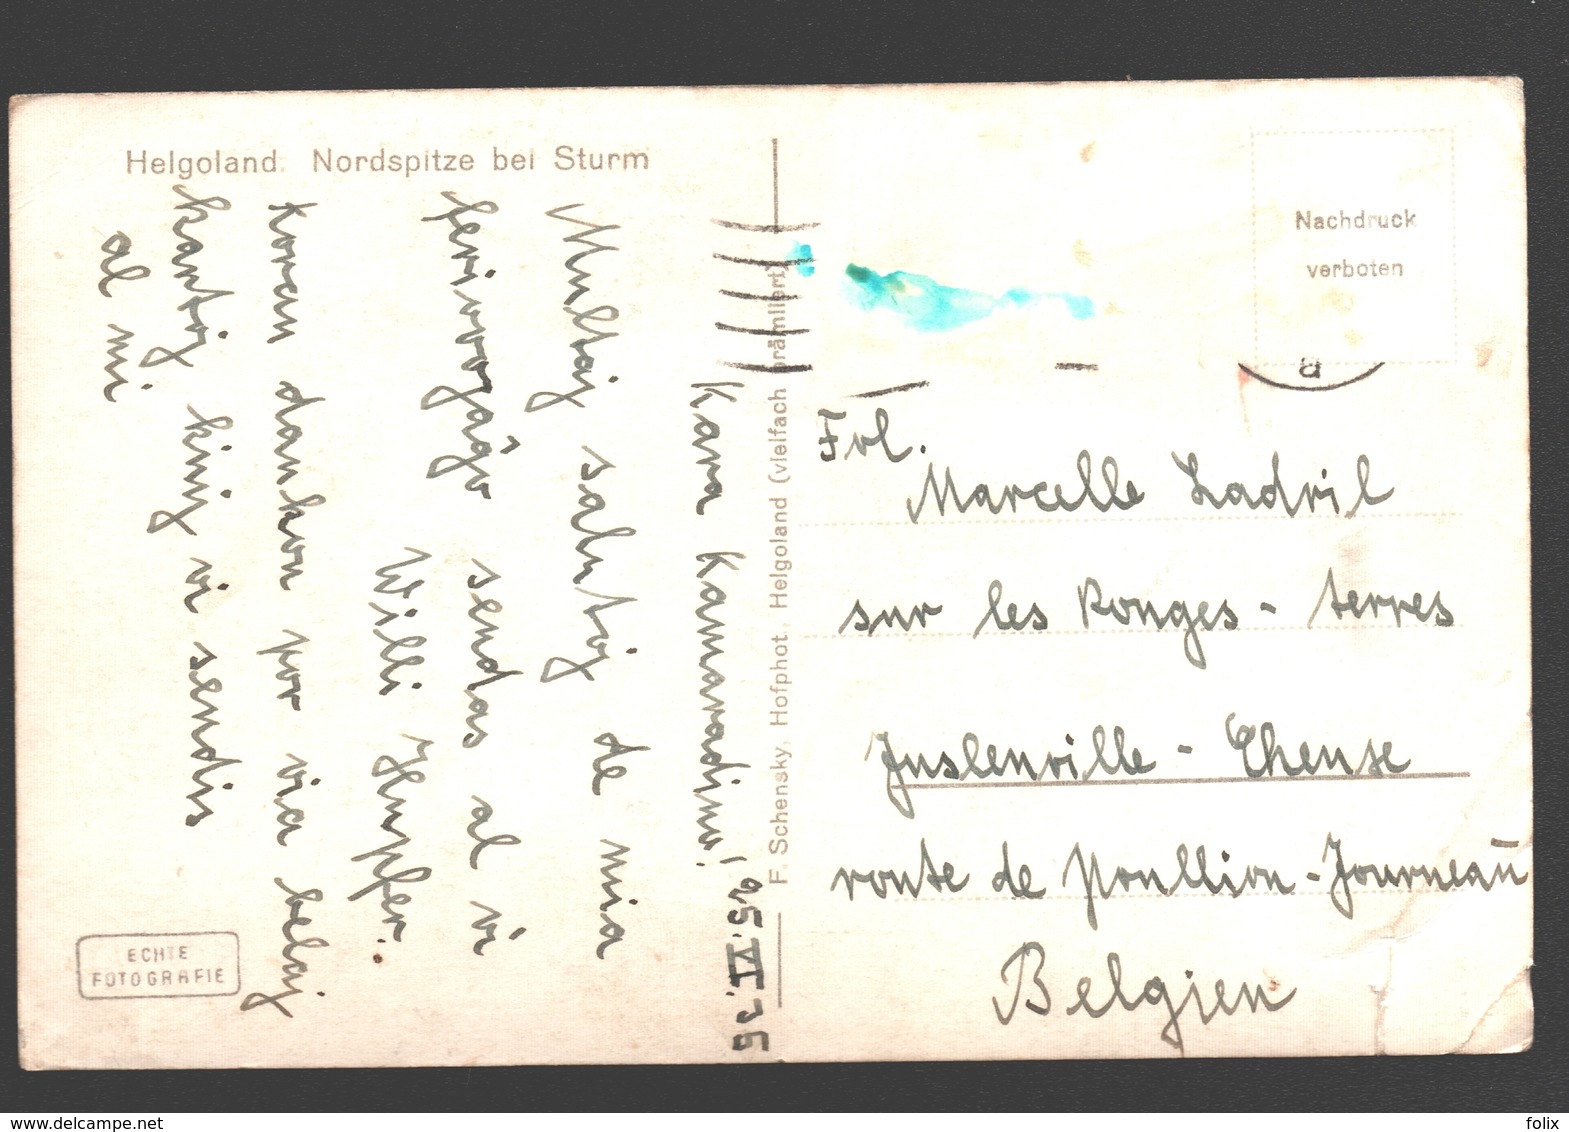 Helgoland. Nordspitze bei Sturm
25.VI.36
Kara Kamaradino!
Multaj salutoj de mia
feriovojaĝo sendas al vi
Willi Hupfer.
Koran dankon por via belaj
kartoj kiuj vi sendis
al mi
ECHTE
FOTOGRAFIE
F. Schensky, Hofphot., Helgoland (vielfach prämiiert)
Nachdruck
verboten
Frl.
Marcelle Ladril
sur les Rouges-terres
Juslenville - Theuse
route de Poullion-Journeau
Belgien
delcampe.net
felix